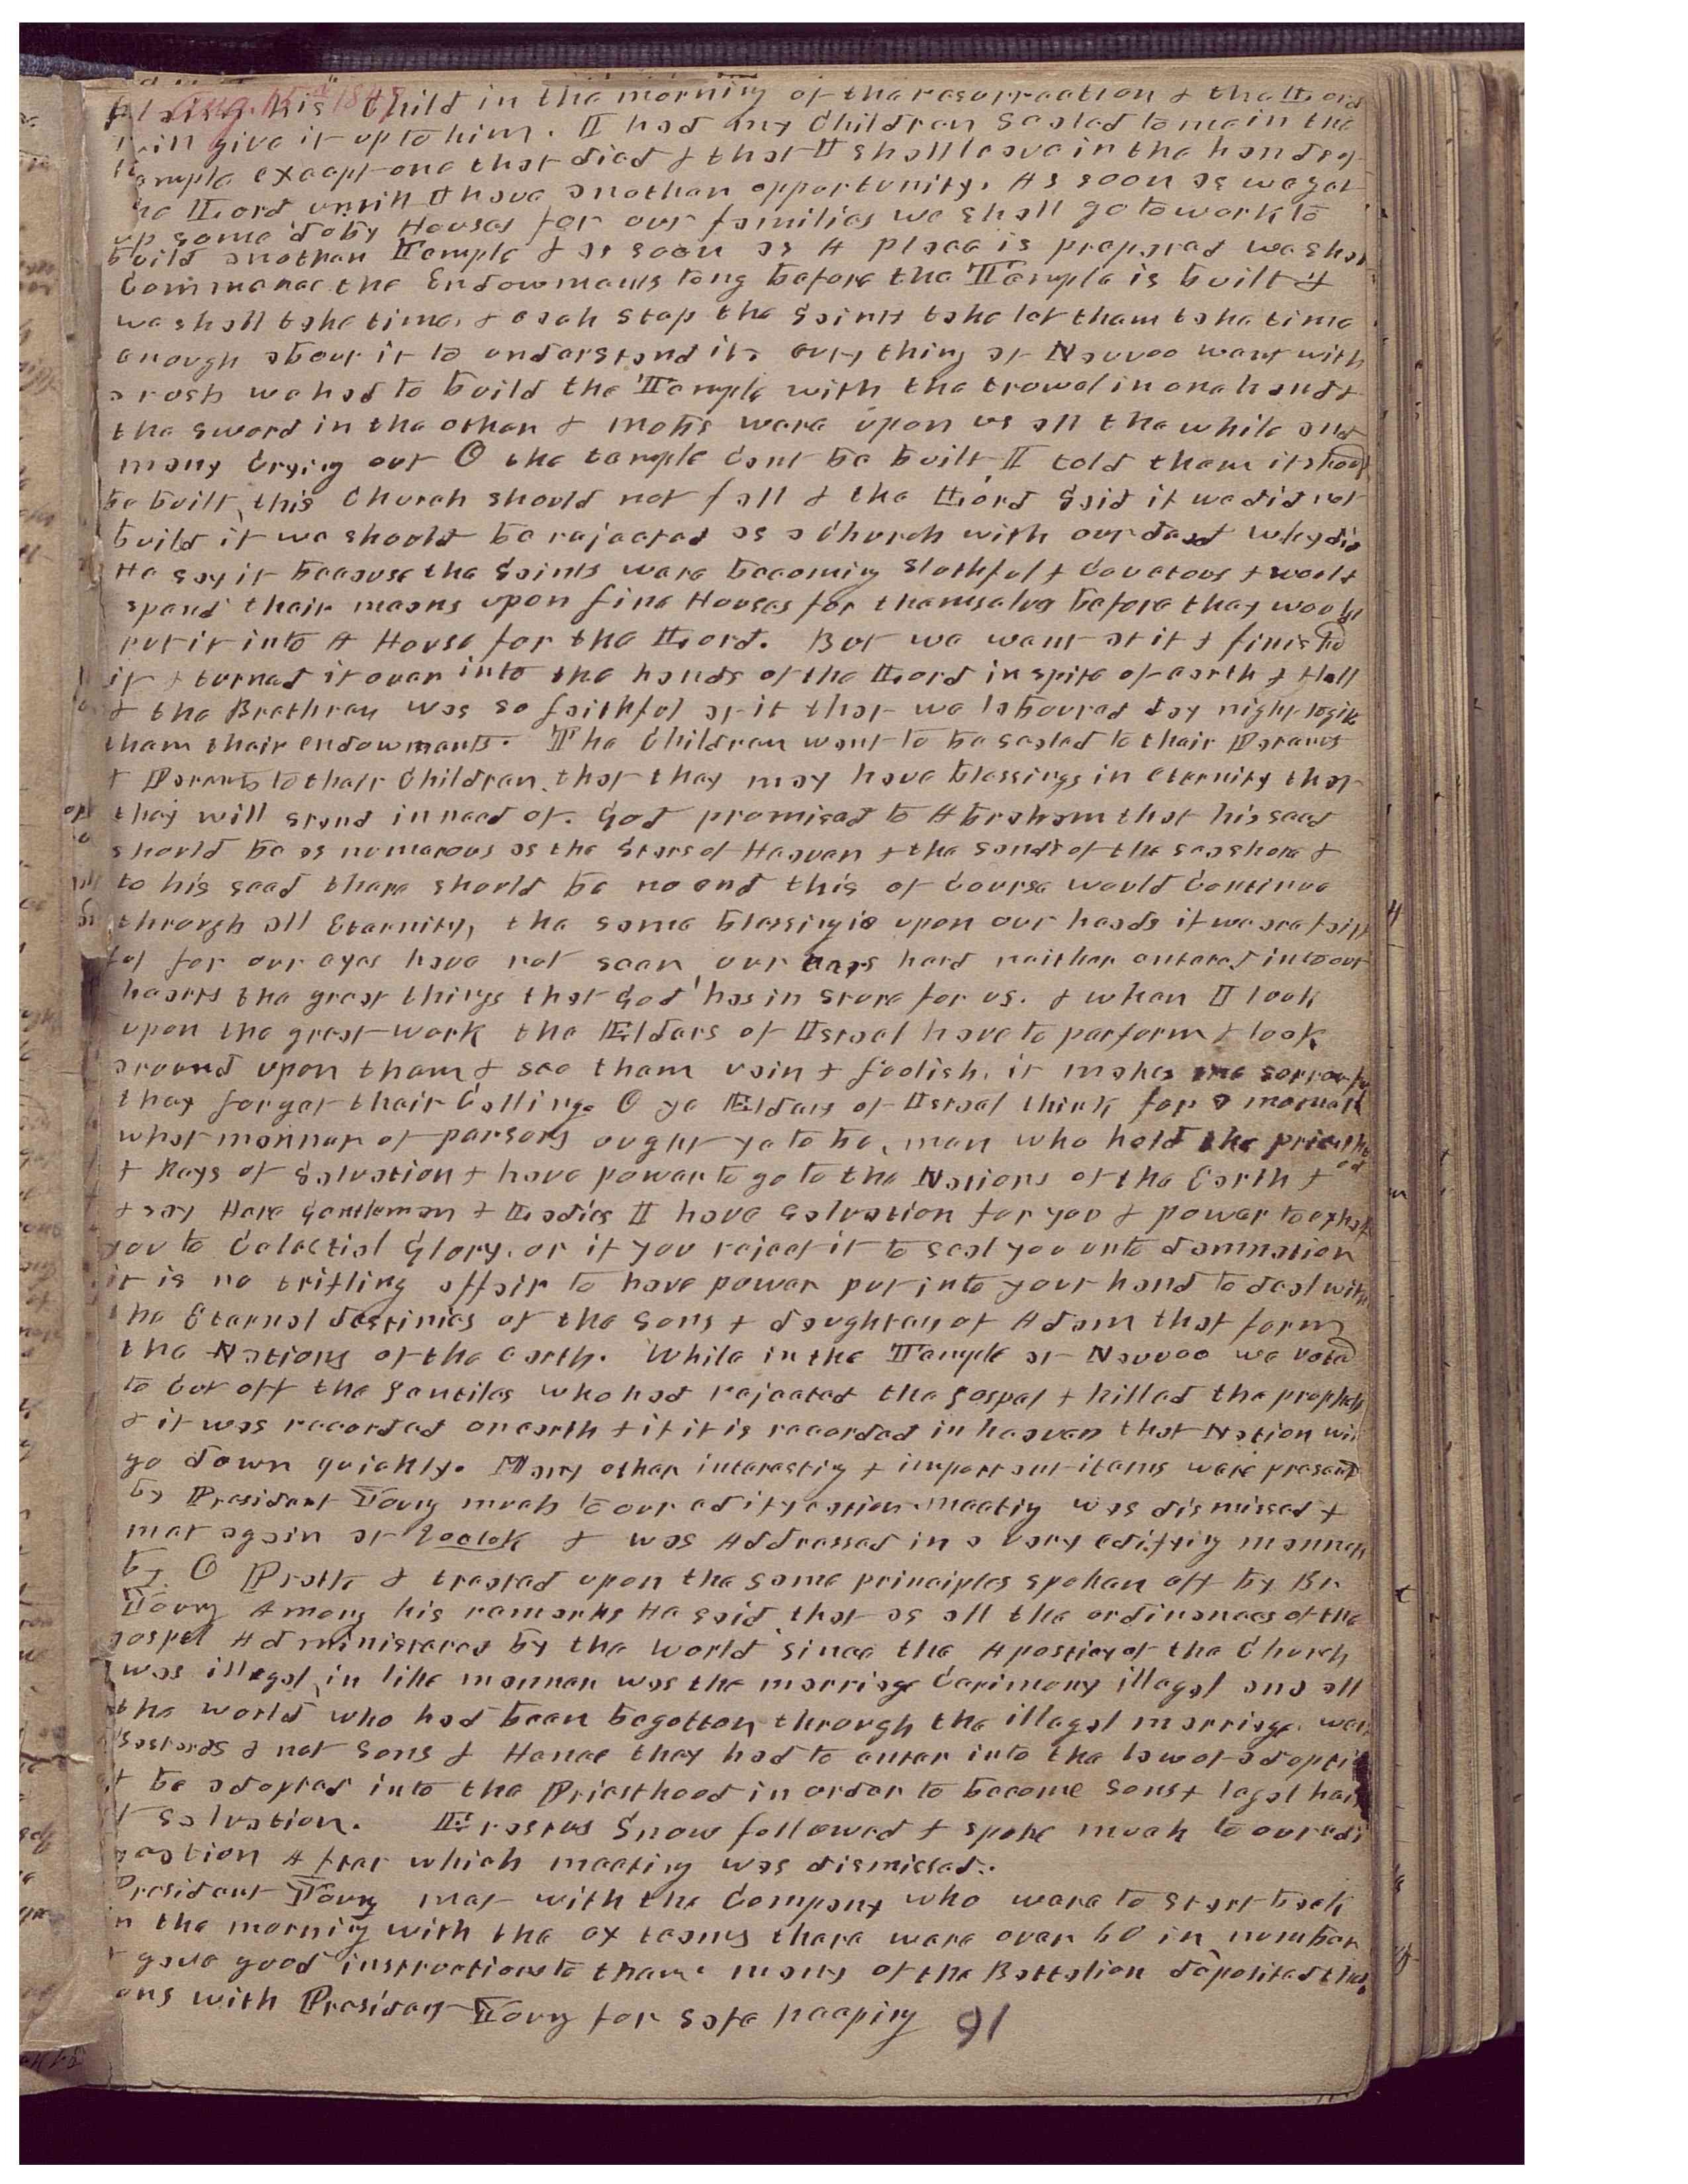 Aug. 15th 1847
claim his Child in the morning of the resurrection & the Lord
will give it up to him. I had my Children Sealed to me in the
temple except one that died & that I shall leave in the hands of
the Lord untill I have another opportunity. As soon as we get
up some doby Houses for our families we shall go to work to
build another Temple & as soon as A place is prepared we shall
Commence the Endowments long before the Temple is built &
we shall take time, & each step the Saints take let them take time
enough about it to understand it. evry thing at Nauvoo went with
a rush we had to build the Temple with the trowel in one hand &
the sword in the other & mobs were upon us all the while and
many Crying out O the temple cant be built I told them it should
be built, this Church should not fall & the Lord Said if we did not
build it we should be rejected as a Church with our dead why did
He say it because the Saints were becoming Slothful & Covetous & would
spend their means upon fine Houses for themselvs before they would
put it into A House for the Lord. But we went at it & finished
it & turned it over into the hands of the Lord in spite of earth & Hell
& the Brethren was so faithful at it that we laboured day night to give
them their endowments. The Children want to be sealed to their Parents
& Parents to their Children, that they may have blessings in eternity that
they will stand in need of. God promised to Abraham that his seed
should be as numerous as the Stars of Heaven & the sands of the seashore &
to his seed there should be no end this of Course would Continue
through all Eternity, the same blessing is upon our heads if we are faith
ful for our eyes have not seen, our ears hard neither entered into our
hearts the great things that God has in store for us. & when I look
upon the great work the Elders of Israel have to perform & look
around upon them & see them vain & foolish, it makes me sorrowful
they forget their Calling. O ye Elders of Israel think for a moment
what manner of persons ought ye to be, men who hold the priesthood
& Keys of Salvation & have power to go to the Nations of the Earth &
& say Here Gentlemen & Ladies I have salvation for you & power to exhalt
you to Celectial Glory, or if you reject it to seal you unto damnation
it is no trifling affair to have power put into your hand to deal with
the Eternal destinies of the Sons & daughters of Adam that form
the Nations of the earth. While in the Temple at Nauvoo we voted
to Cut off the gentiles who had rejected the gospel & killed the prophets
& it was recorded on earth & if it is recorded in heaven that Nation will
go down quickly. Many other interesting & important items were present
by President Young much to our edifycation. meeting was dismissed &
met again at 2 oclok & was Addressed in a very edifying manner
by O Pratt & treated upon the same principles spoken off by Br
Young Among his remarks He said that as all the ordinances of the
gospel Administered by the world since the Aposticy of the Church
was illegal, in like manner was the marriage Cerimony illegal and all
the world who had been begotton through the illegal marriage were
bastards & not Sons & Hence they had to enter into the law of adopti
& be adopted into the Priesthood in order to become sons & legal heirs
of salvation. Erastus Snow followed & spoke much to our edi
fication After which meeting was dismissed.
President Young met with the Company who were to start back
in the morning with the ox teams there were over 60 in number
& gave good instructions to them. many of the Battalion deposited their
guns with President Young for safe keeping 91